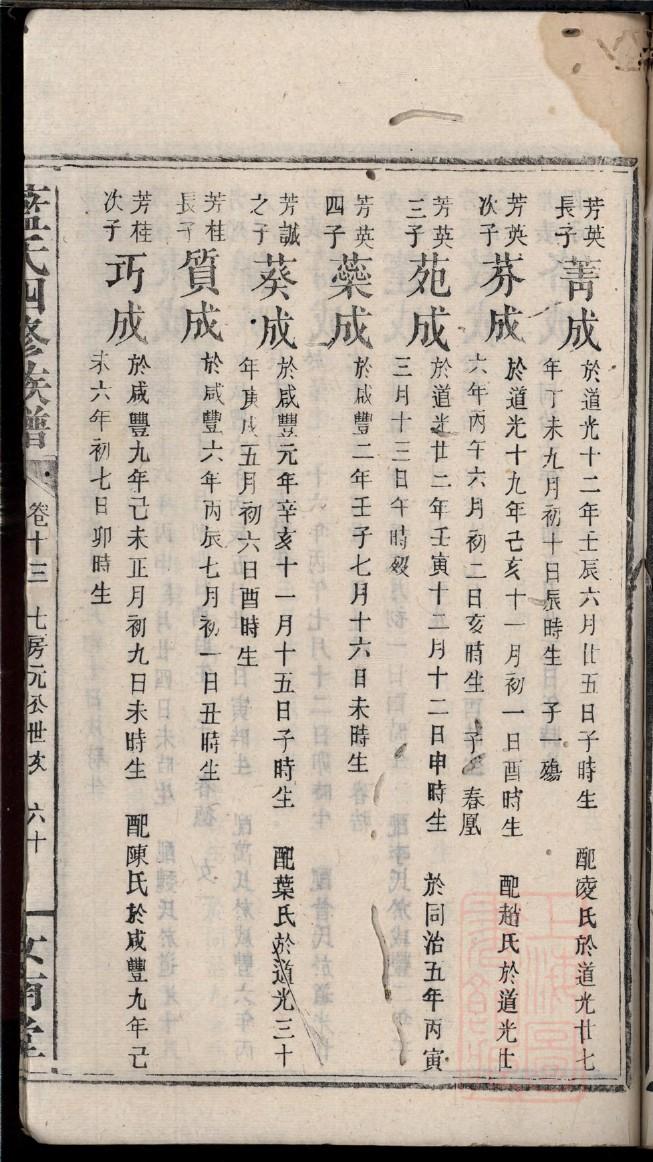 芳英
長子
菁成
於道光十二年壬辰六月廿五日子時生 配凌氏於道光廿七
年丁未九月初十日辰時生 子一殤
芳英
次子
芬成
於道光十九年己亥十一月初一日酉時生 配趙氏於道光廿
六年丙午六月初二日亥時生 子 春凰
芳英
三子
苑成
於道光廿二年壬寅十二月十二日申時生 於同治五年丙寅
三月十三日午時歿
芳英
四子
蘂成
於咸豐二年壬子七月十六日未時生
芳誠
之子
葵成
於咸豐元年辛亥十一月十五日子時生 配葉氏於道光三十
年庚戌五月初六日酉時生
芳桂
長子
質成
於咸豐六年丙辰七月初一日丑時生
芳桂
次子
巧成
於咸豐九年己未正月初九日未時生 配陳氏於咸豐九年己
未六年初七日卯時生
藍氏四修族譜
卷十三 七房元公世亥 六十